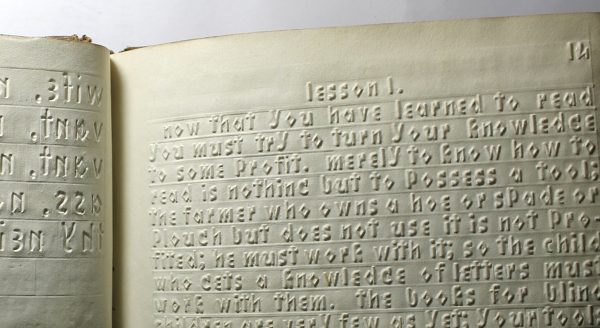 lesson 1.
now that you have learned to read
you must try to turn your knowledge
to some profit. merely to know how to
read is nothing but to possess a tool;
the farmer who owns a hoe or spade or
plough but does not use it is not pro-
fited; he must work with it; so the child
who gets a knowledge of letters must
work with them. the books for blind
children are very few as yet; your tools